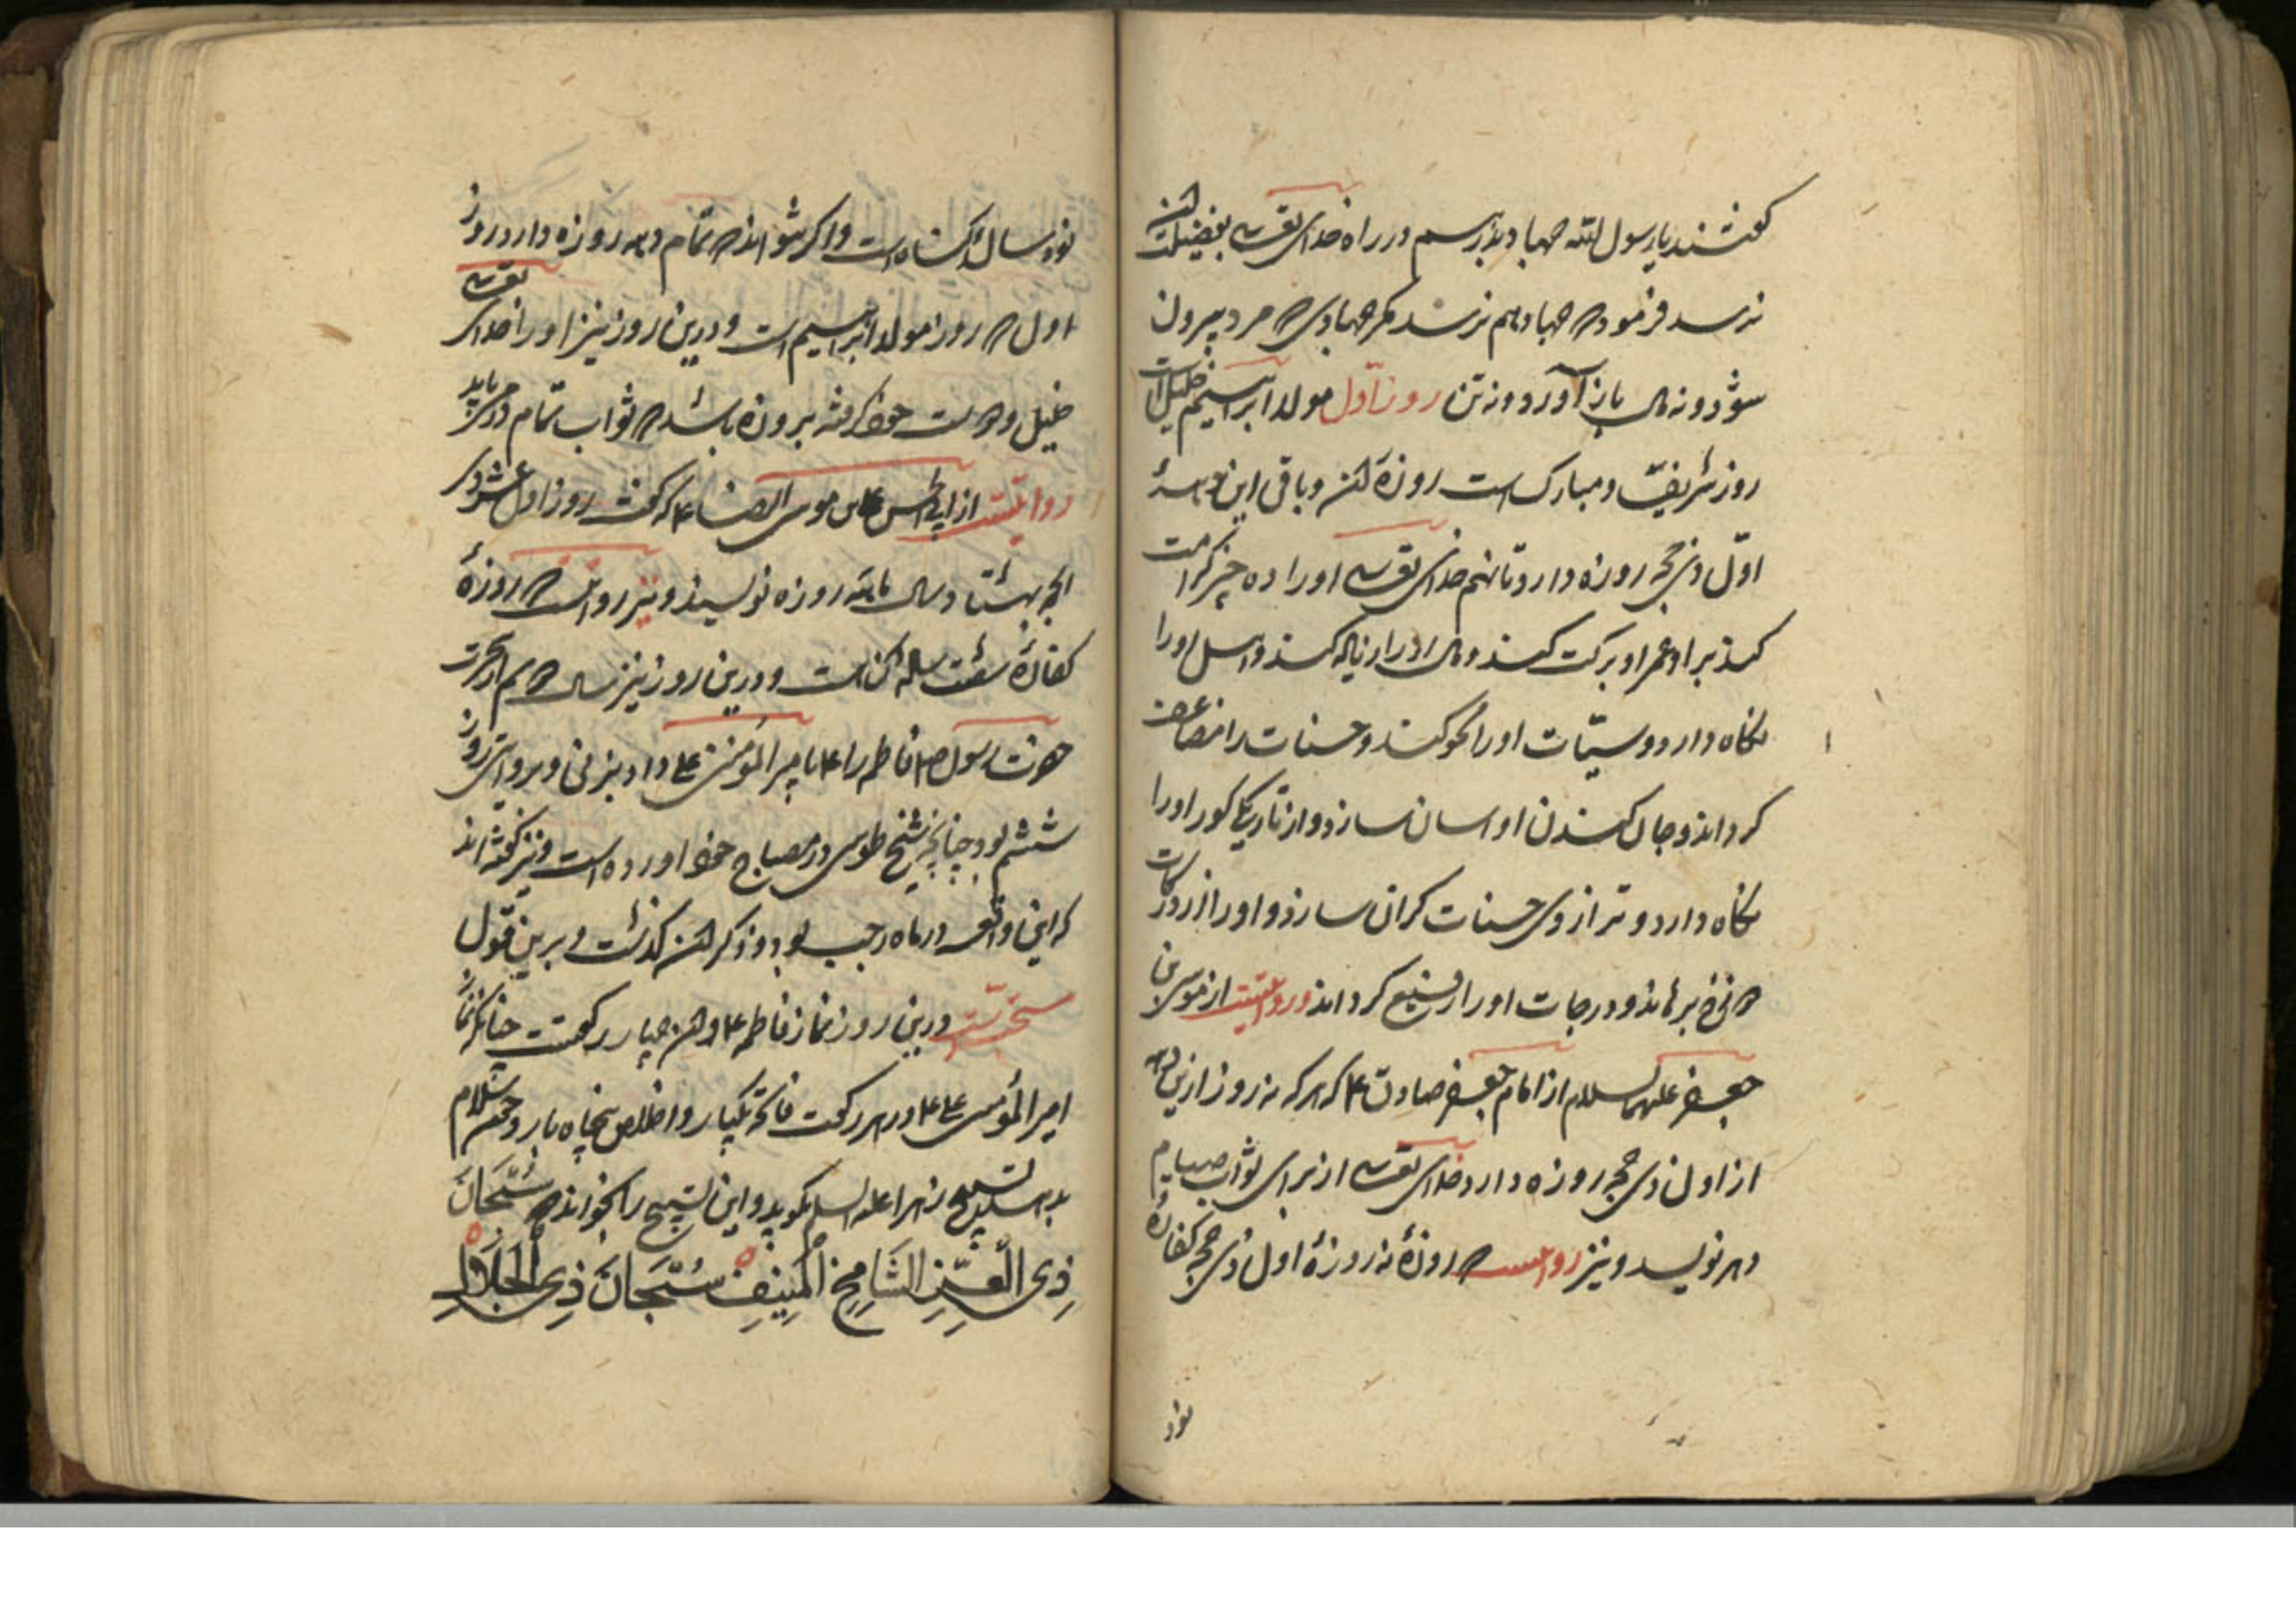 گفتند یا رسول الله جهاد نیز رسم در راه خدای تعالی بفضیلت آن
نرسد فرمود که جهاد هم نرسد مگر جهادی که مرد بیرون
شود و نه مال باز آورد و نه تن روز اول مولد ابراهیم خلیل است
روز شریف و مبارک است روزهٔ آن و باقی این
اول ذی حجه روزه دارد تا نهم خدای تعالی او را ده چیز کرامت
کند بر او عمر او برکت کند و مال او را زیاده کند و اهل او را
نگاه دارد و سیّئات او را محو کند و حسنات را مضاعف
گرداند و جان کندن او آسان سازد و از تاریکی گور او را
نگاه دارد و ترازوی حسنات گران سازد و او را از درکات
برهاند و درجات او را رفیع گرداند و روایتست از موسی بن
جعفر علیهما السلام از امام جعفر صادق ۴ که هر که نه روز ازین دهه
از اول ذی حجه روزه دارد خدای تعالی از برای او ثواب صیام
دهر نویسد و نیز روایتست که روزهٔ نه روزهٔ اول ذی حجه کفارهٔ
نود
نود سال گناه است و اگر نتواند که تمام دهه روزه دارد روز
اول که روز مولد ابراهیم است و درین روز نیز او را خدای تعالی
خلیل و دوست خود گرفته بروزه باشد که ثواب تمام دهه می یابد
روایتست از ابی الحسن علی بن موسی الرضا ۴ که گفت روز اول عشر ذی
الحجه بهشتاد ساله روزه نویسند و نیز روایتست که روزهٔ
کفارهٔ شصت ساله گناه است و درین روز نیز سال دوم از هجرت
حضرت رسول ص فاطمه را ۴ با میر المؤمنین علی داد بزنی و بروایتی روز
ششم بود چنانچه شیخ طوسی در مصباح خود آورده است و نیز گفته اند
که این واقعه در ماه رجب بود و ذکر آن گذشت و برین قول
سنّتست درین روز نماز فاطمه ۴ و آن چهار رکعت چنانکه نماز
امیر المؤمنین علی ۴ در هر رکعت فاتحه یکبار و اخلاص پنجاه بار و چون سلام
بدهد تسبیح زهرا علیها السلام بگوید و این تسبیح را بخواند که سُبْحَانَ
ذِی الْعِزِّ الشَّامِخِ الْمُنِیفِ سُبْحَانَ ذِی الْجَلَالِ